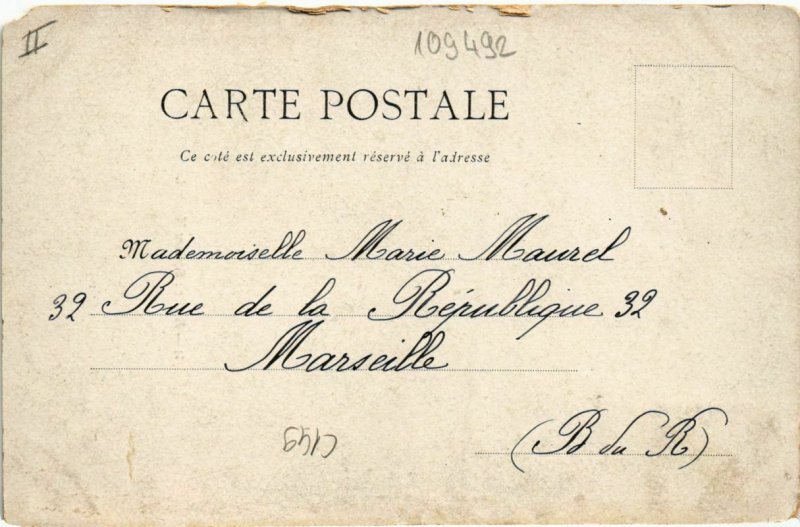 II
109492
CARTE POSTALE
Ce côté est exclusivement réservé à l'adresse
Mademoiselle Marie Maurel
32 Rue de la République 32
Marseille
(B du R)